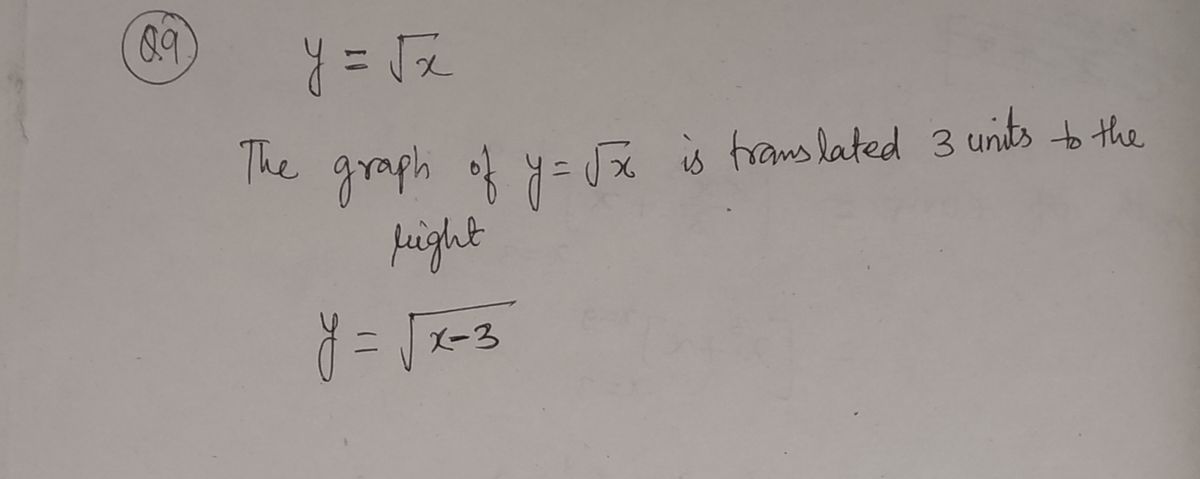 Q.9 y = √x
The graph of y = √x is translated 3 units to the
right
y = √(x-3)